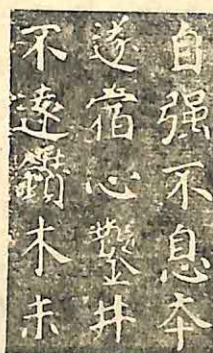 自强不息夲
遂宿心鑿井
不遠鑽木未